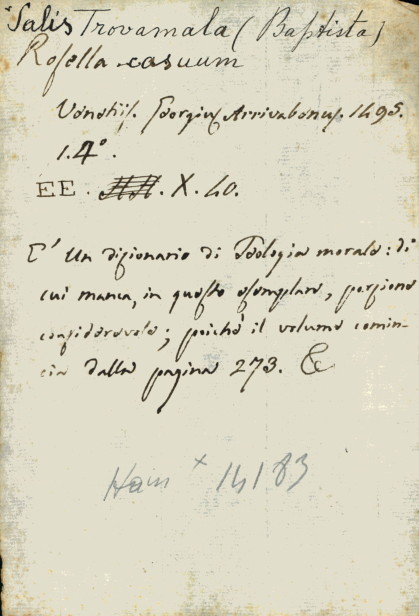 Salis Trovamala (Baptista)
Rosella casuum
Venetiis. Georgius Arrivabenus. 1495.
1.4°.
EE. . X. 40.
E' Un dizionario di Teologia morale: di
cui manca, in questo esemplare, porzione
considerevole; poichè il volume comin-
cia dalla pagina 273.
Hain × 14183